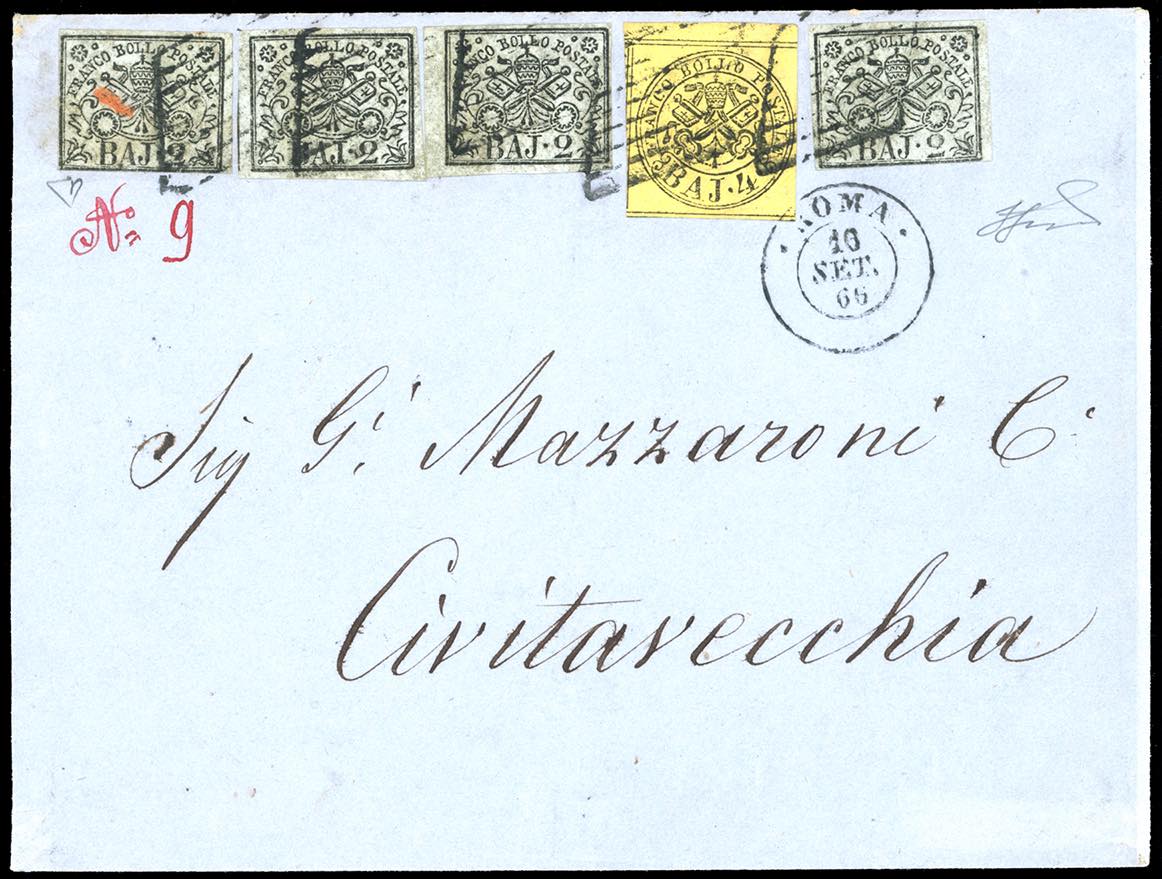 FRANCO BOLLO POSTALE
BAJ·2
FRANCO BOLLO POSTALE
BAJ·2
FRANCO BOLLO POSTALE
BAJ·2
FRANCO BOLLO POSTALE
BAJ·4
FRANCO BOLLO POSTALE
BAJ·2
Nº 9
ROMA
16
SET.
66
Sig Gi Mazzaroni C.
Civitavecchia